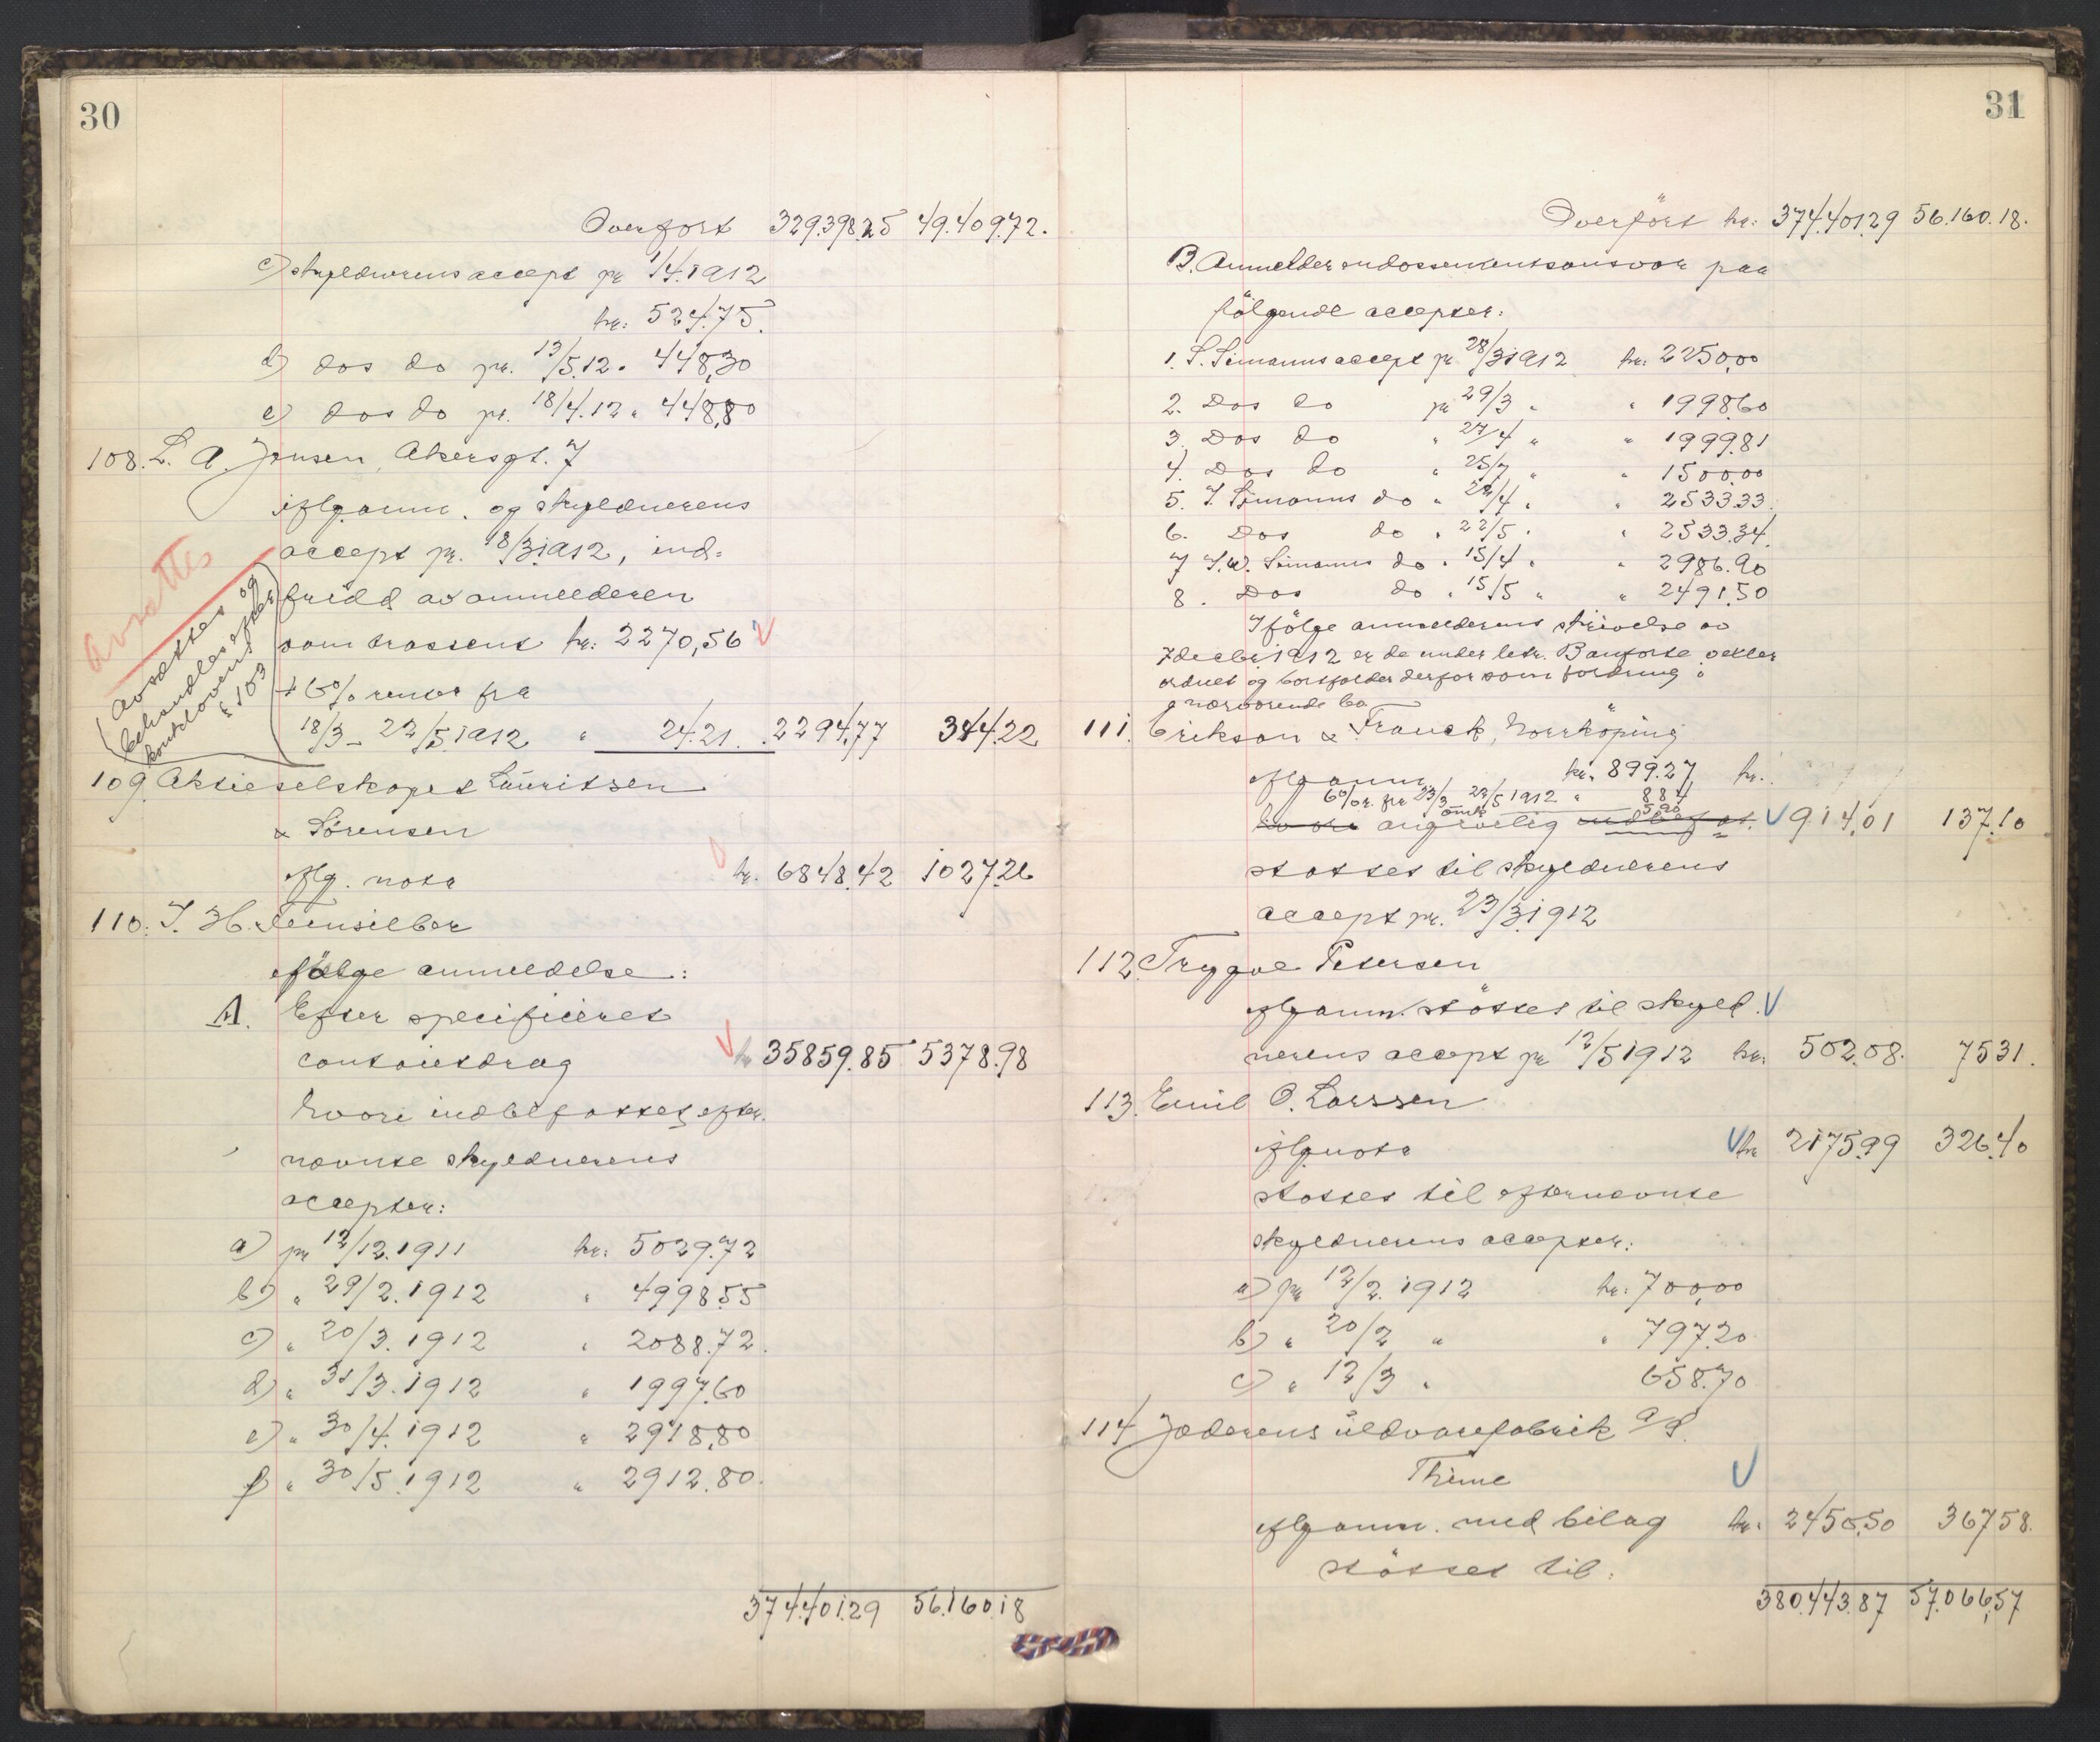 30
Overført 329.398.25 49.409.72.
c) skyldnerens accept pr 1/4.1912
kr: 524.75.
d) dos do pr. 13/5.12. 448,30
e) dos do pr. 18/4.12 " 448,80
108. L. A. Jensen, Akersgt. 7
iflg. anm. og skyldnerens
accept pr. 18/3.1912, ind-
friedd av anmelderen
som trassent kr: 2270,56
+ 6% renter fra
18/3 - 22/5.1912 " 24.21. 2294,77 344.22
avsættes
(avsættes og
behandles efter
konkloven
§ 103)
109. Aktieselskapet Lauritsen
& Sørensen
iflg. nota kr. 6848.42 1027.26
110. J. H. Feinsilber
ifølge anmeldelse:
A. Efter specificeret
contoutdrag kr 35859.85 5378.98
hvori indbefattes efter-
nævnte skyldnerens
accepter:
a) pr 12/12.1911 kr: 5029.72
b) " 29/2.1912 " 4998.55
c) " 20/3.1912 " 2088.72.
d) " 31/3.1912 " 1997.60
e) " 30/4.1912 " 2918,80
f) " 30/5.1912 " 2912.80.
374.401.29 56.160.18
31
Overført kr: 374.401.29 56.160.18.
B. Anmelder endossementsansvar paa
følgende accepter:
1. S. Simanns accept pr 28/3 1912 kr: 2250,00
2. Dos do pr 29/3 " " 1998.60
3. Dos do " 27/4 " " 1999.81
4. Dos do " 25/7 " " 1500.00
5. J. Simanns do " 22/4 " " 2533.33.
6. Dos do " 22/5 " " 2533.34.
7 J.W. Simanns do " 15/4 " " 2986.90
8. Dos do " 15/5 " " 2491.50
Ifølge anmelderens skrivelse av
7 decbr 1912 er de under litr. B anførte veksler
ordnet og bortfalder derfor som fordring i
nærværende bo
111. Erikson & Franck, Norrköping
iflg anm kr. 899.27 kr.
6% r. fra 23/3 - 22/5 1912 " 884
omk 5.90
angivelig 914,01 137.10
støttes til skyldnerens
accept pr. 23/3.1912
112. Trygve Petersen
iflg anm. støttes til skyld-
nerens accept pr 12/5 1912 kr. 502.08. 75.31.
113. Emil O. Larssen
iflg nota kr 2175.99 326.40
støttes til efternævnte
skyldnerens accepter:
a) pr 12/2.1912 kr: 700,00
b) " 20/2 " " 797.20
c) " 12/3 " 658.70
114 Jæderens uldvarefabrik A/S.
Thime
iflg anm. med bilag kr. 2450.50 367.58.
støttes til:
380.443.87 57.066,57